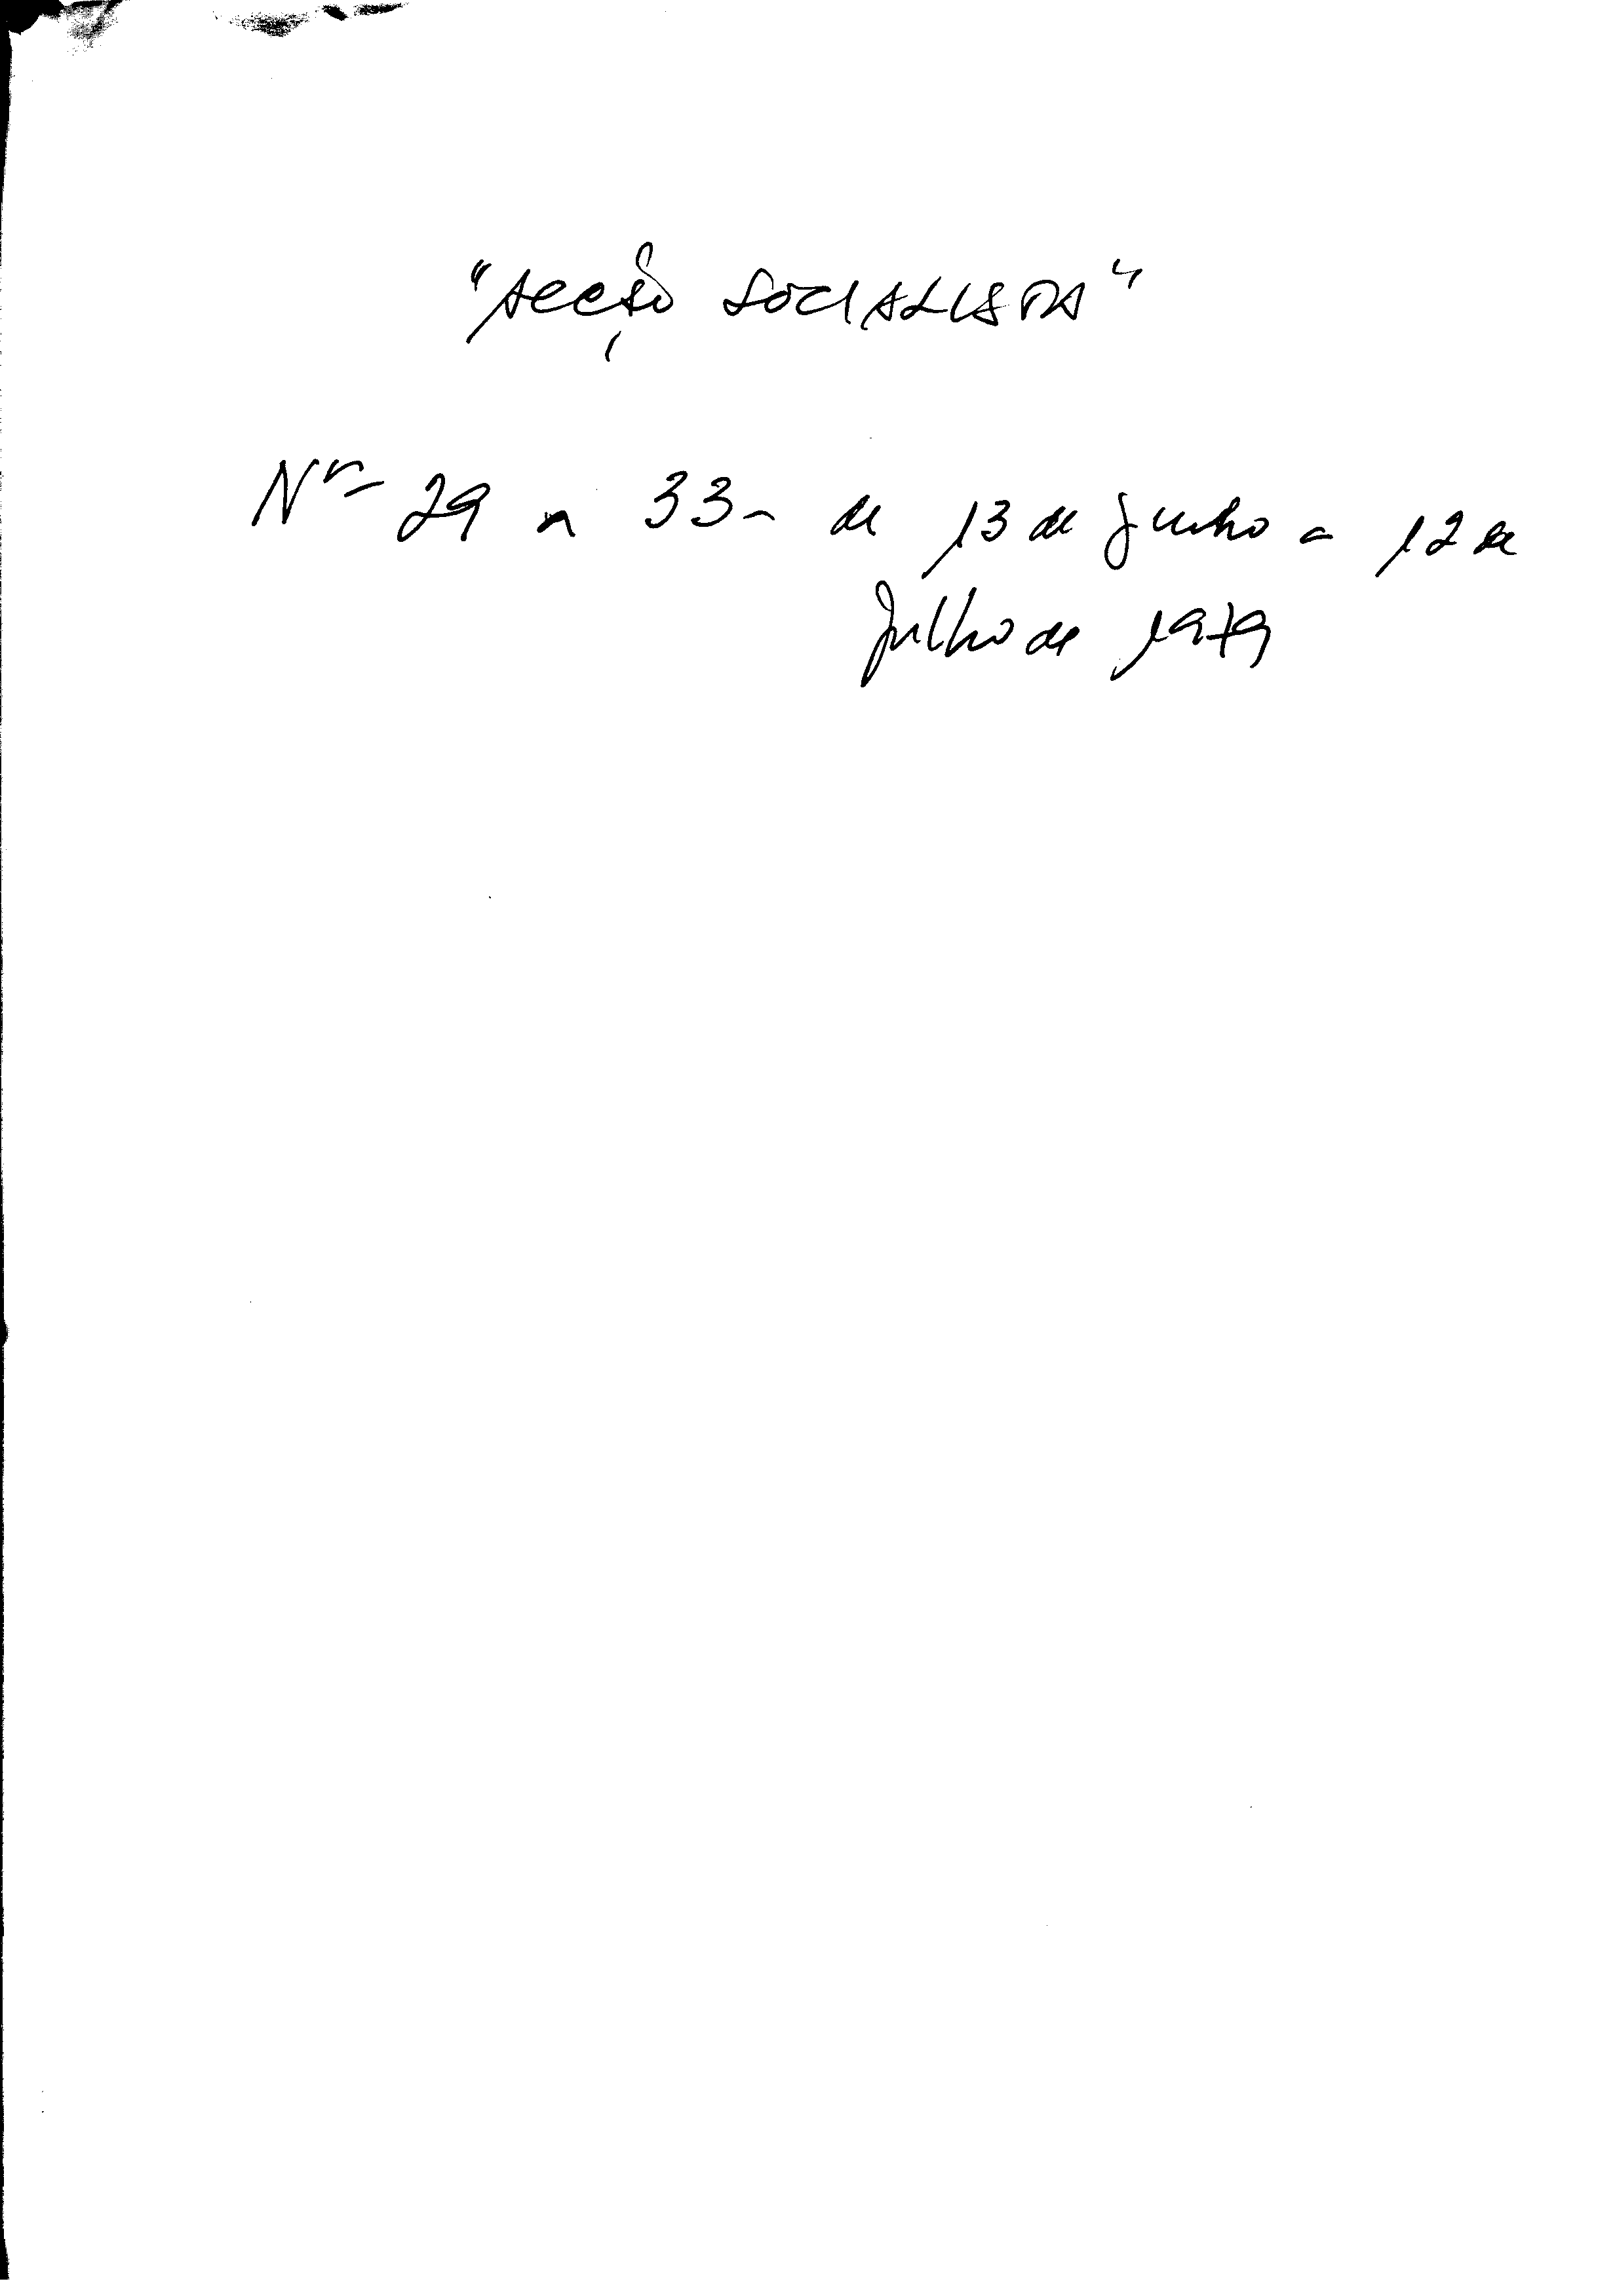 "ACÇÃO SOCIALISTA"
Nr- 29 a 33- de 13 de Junho a 12 de
Julho de 1979